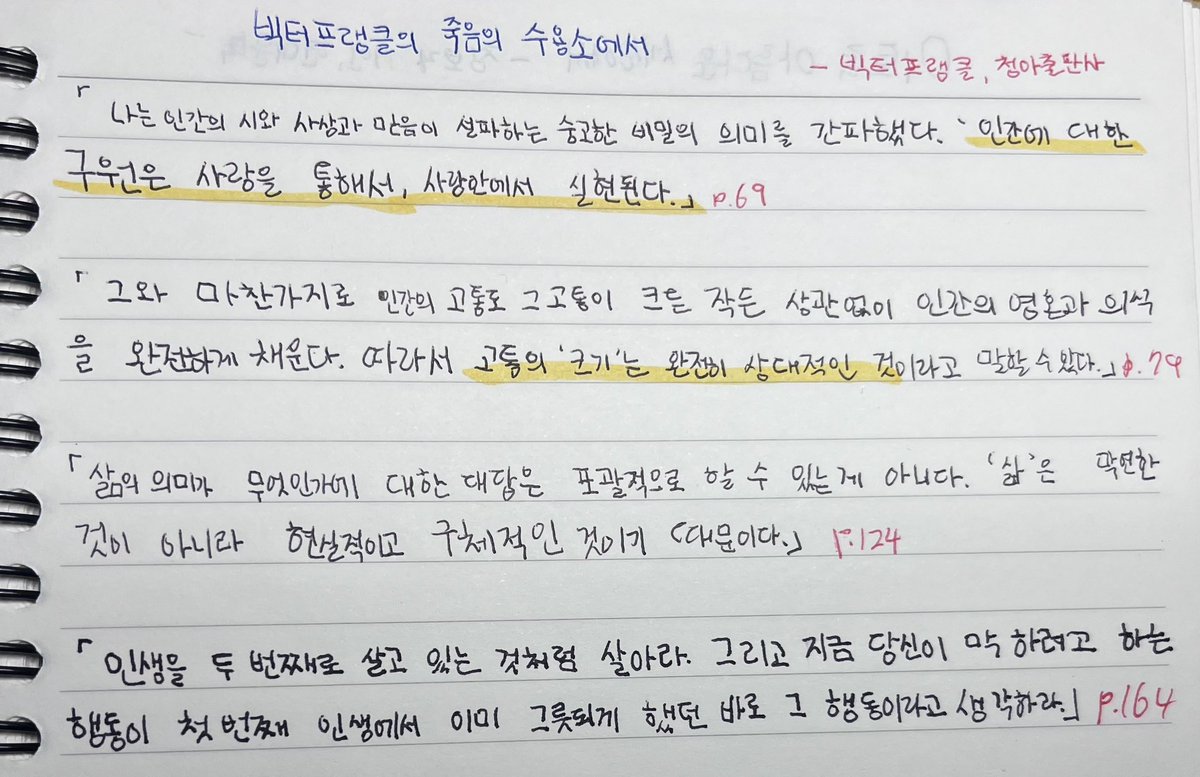 빅터프랭클의 죽음의 수용소에서
- 빅터프랭클, 청아출판사
「나는 인간의 시와 사상과 믿음이 설파하는 숭고한 비밀의 의미를 간파했다. '인간에 대한
구원은 사랑을 통해서, 사랑안에서 실현된다.」 p.69
「그와 마찬가지로 인간의 고통도 그고통이 크든 작든 상관없이 인간의 영혼과 의식
을 완전하게 채운다. 따라서 고통의 '크기'는 완전히 상대적인 것이라고 말할 수 있다.」 p.79
「삶의 의미가 무엇인가에 대한 대답은 포괄적으로 할 수 있는게 아니다. '삶'은 막연한
것이 아니라 현실적이고 구체적인 것이기 때문이다.」 p.124
「인생을 두 번째로 살고 있는 것처럼 살아라. 그리고 지금 당신이 막 하려고 하는
행동이 첫 번째 인생에서 이미 그릇되게 했던 바로 그 행동이라고 생각하라.」 p.164